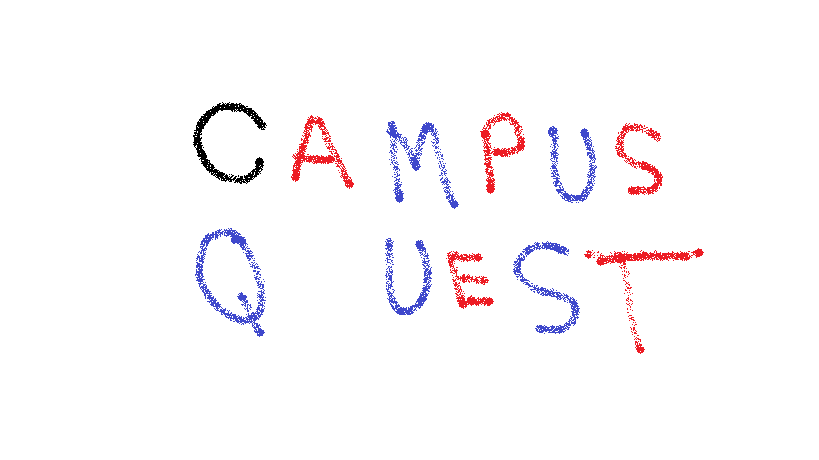 CAMPUS
QUEST